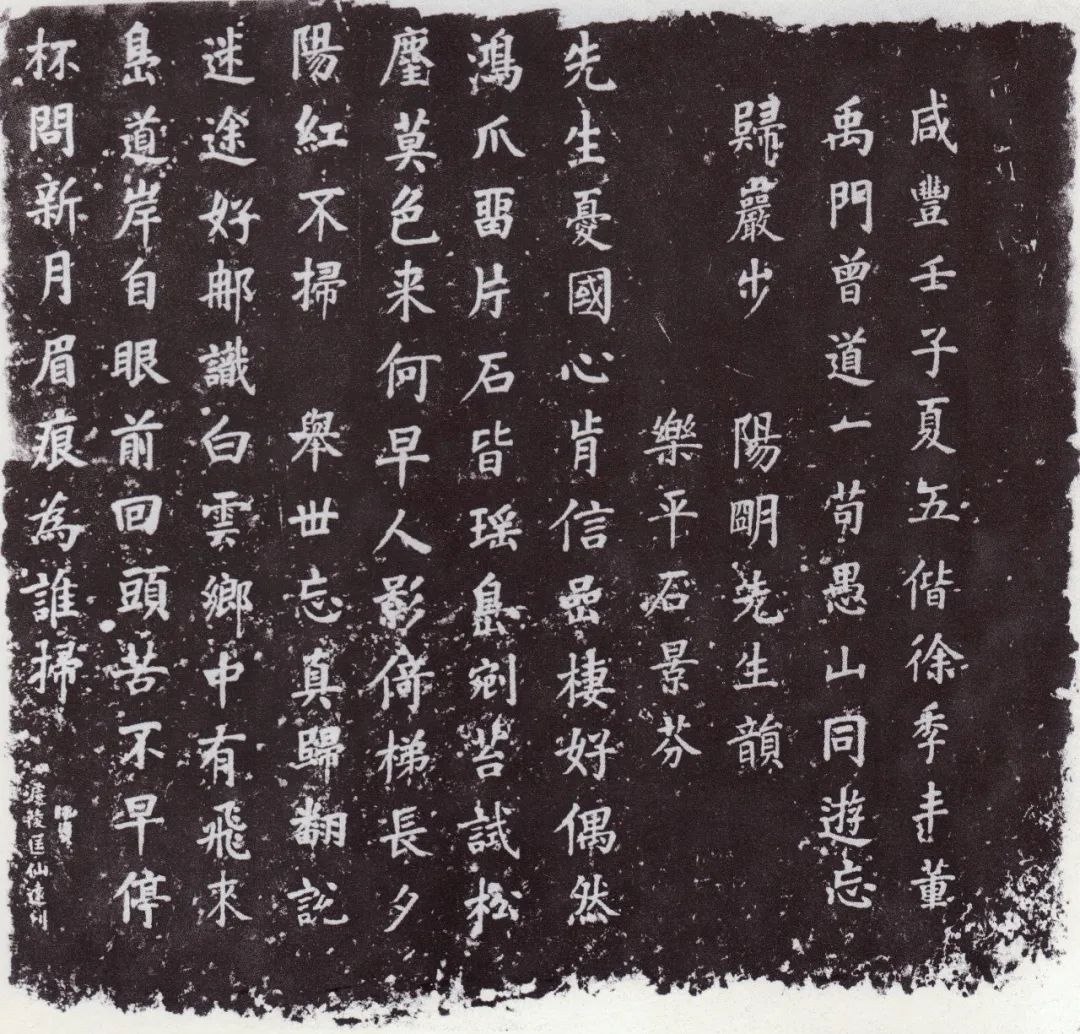 咸豐壬子夏五偕徐季董
禹門曾道一苟愚山同遊忘
歸巖步 陽明先生韻
樂平石景芬
先生憂國心肯信嵒棲好偶然
鴻爪畱片石皆瑶島剜苔試松
麈莫色来何早人影倚梯長夕
陽紅不掃 舉世忘真歸翻説
迷途好郍識白雲鄉中有飛来
島道岸自眼前回頭苦不早停
杯問新月眉痕為誰掃
陵匡仙達刊